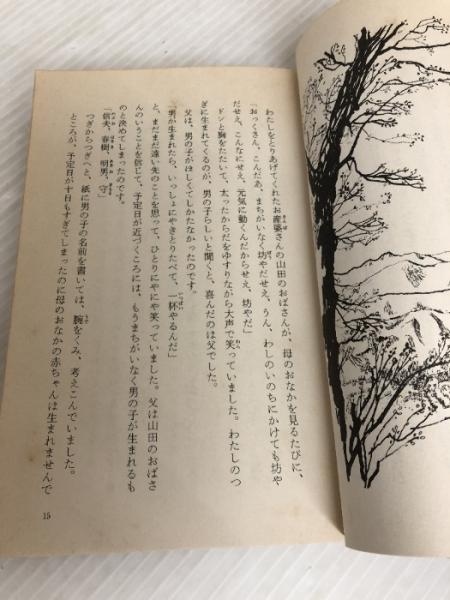 わたしをとりあげてくれたお産婆さんの山田のおばさんが、母のおなかを見るたびに、
「おっくさん、こんだあ、まちがいなく坊やだせえ、うん、わしのいのちにかけても坊や
だせえ、こんなにせえ、元気に動くんだからせえ、坊やだ」
ドンと胸をたたいて、太ったからだをゆすりながら大声で笑っていました。わたしのつ
ぎに生まれてくるのが、男の子らしいと聞くと、喜んだのは父でした。
父は、男の子がほしくてしかたなかったのです。
「男が生まれたら、いっしょにやきとりたべて、一杯やるんだ」
と、まだまだ遠い先のことを思って、ひとりにやにや笑っていました。父は山田のおばさ
んのいうことを信じて、予定日が近づくころには、もうまちがいなく男の子が生まれるも
のと決めてしまったのです。
「信夫、春樹、明男、守」
つぎからつぎへと、紙に男の子の名前を書いては、腕をくみ、考えこんでいました。
ところが、予定日が十日もすぎてしまったのに母のおなかの赤ちゃんは生まれませんで
15